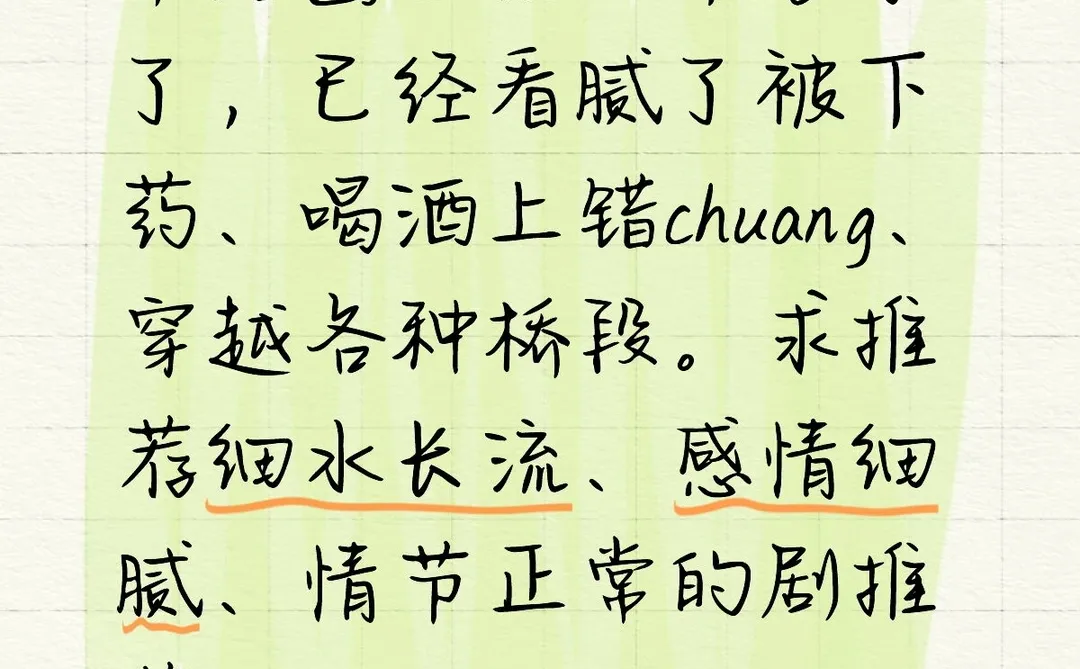 了，已经看腻了被下
药、喝酒上错chuang、
穿越各种桥段。求推
荐细水长流、感情细
腻、情节正常的剧推